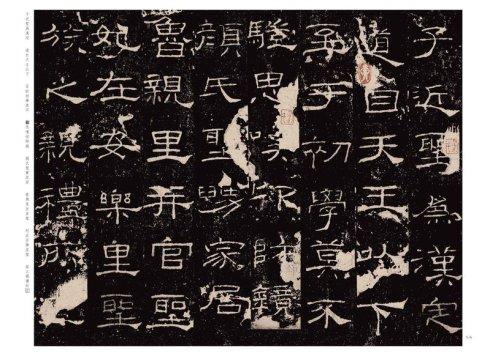 子近聖為漢定
道自天王以下
至于初學莫不
驥思嘆卬師鏡
顏氏聖舅家居
魯親里并官聖
妃在安樂里聖
族之親禮所